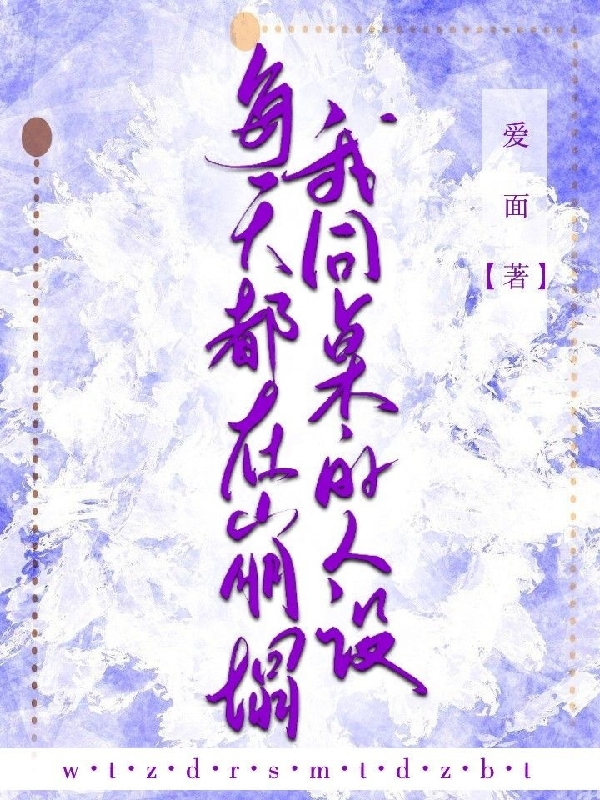 我同桌的人设
每天都在崩塌
爱面
【著】
w·t·z·d·r·s·m·t·d·z·b·t